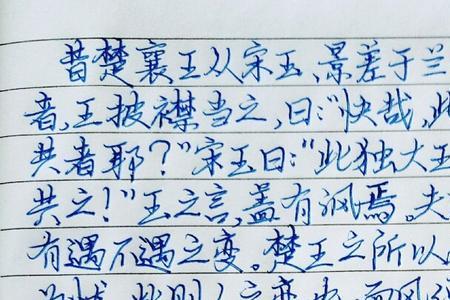 昔楚襄王从宋玉、景差于兰
者,王披襟当之,曰:"快哉,此
共者耶?"宋玉曰:"此独大王
共之!"王之言,盖有讽焉。夫
有遇不遇之变。楚王之所以
为忧,此则人之变也,而风何